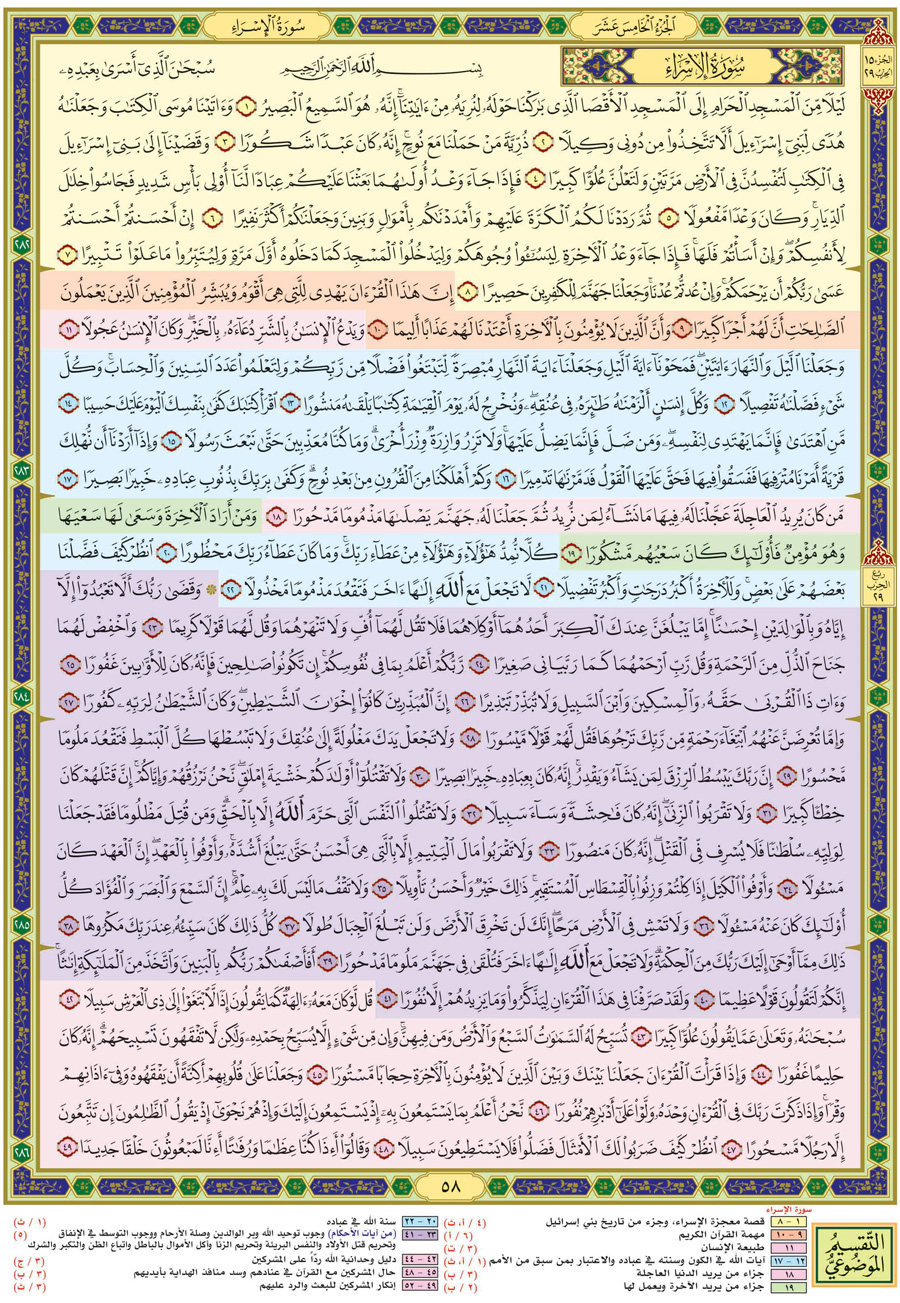 الجزء الخامس عشر
سورة الإسراء
الجزء ١٥
الحزب ٢٩
سُورَةُ الإِسْرَاءِ
بِسْمِ ٱللَّهِ ٱلرَّحْمَٰنِ ٱلرَّحِيمِ
سُبْحَٰنَ ٱلَّذِىٓ أَسْرَىٰ بِعَبْدِهِۦ
لَيْلًا مِّنَ ٱلْمَسْجِدِ ٱلْحَرَامِ إِلَى ٱلْمَسْجِدِ ٱلْأَقْصَا ٱلَّذِى بَٰرَكْنَا حَوْلَهُۥ لِنُرِيَهُۥ مِنْ ءَايَٰتِنَآ إِنَّهُۥ هُوَ ٱلسَّمِيعُ ٱلْبَصِيرُ ١ وَءَاتَيْنَا مُوسَى ٱلْكِتَٰبَ وَجَعَلْنَٰهُ
هُدًى لِّبَنِىٓ إِسْرَٰٓءِيلَ أَلَّا تَتَّخِذُوا۟ مِن دُونِى وَكِيلًا ٢ ذُرِّيَّةَ مَنْ حَمَلْنَا مَعَ نُوحٍ إِنَّهُۥ كَانَ عَبْدًا شَكُورًا ٣ وَقَضَيْنَآ إِلَىٰ بَنِىٓ إِسْرَٰٓءِيلَ
فِى ٱلْكِتَٰبِ لَتُفْسِدُنَّ فِى ٱلْأَرْضِ مَرَّتَيْنِ وَلَتَعْلُنَّ عُلُوًّا كَبِيرًا ٤ فَإِذَا جَآءَ وَعْدُ أُولَىٰهُمَا بَعَثْنَا عَلَيْكُمْ عِبَادًا لَّنَآ أُو۟لِى بَأْسٍ شَدِيدٍ فَجَاسُوا۟ خِلَٰلَ
ٱلدِّيَارِ وَكَانَ وَعْدًا مَّفْعُولًا ٥ ثُمَّ رَدَدْنَا لَكُمُ ٱلْكَرَّةَ عَلَيْهِمْ وَأَمْدَدْنَٰكُم بِأَمْوَٰلٍ وَبَنِينَ وَجَعَلْنَٰكُمْ أَكْثَرَ نَفِيرًا ٦ إِنْ أَحْسَنتُمْ أَحْسَنتُمْ
لِأَنفُسِكُمْ وَإِنْ أَسَأْتُمْ فَلَهَا فَإِذَا جَآءَ وَعْدُ ٱلْءَاخِرَةِ لِيَسُۥٓـُٔوا۟ وُجُوهَكُمْ وَلِيَدْخُلُوا۟ ٱلْمَسْجِدَ كَمَا دَخَلُوهُ أَوَّلَ مَرَّةٍ وَلِيُتَبِّرُوا۟ مَا عَلَوْا۟ تَتْبِيرًا ٧
عَسَىٰ رَبُّكُمْ أَن يَرْحَمَكُمْ وَإِنْ عُدتُّمْ عُدْنَا وَجَعَلْنَا جَهَنَّمَ لِلْكَٰفِرِينَ حَصِيرًا ٨ إِنَّ هَٰذَا ٱلْقُرْءَانَ يَهْدِى لِلَّتِى هِىَ أَقْوَمُ وَيُبَشِّرُ ٱلْمُؤْمِنِينَ ٱلَّذِينَ يَعْمَلُونَ
ٱلصَّٰلِحَٰتِ أَنَّ لَهُمْ أَجْرًا كَبِيرًا ٩ وَأَنَّ ٱلَّذِينَ لَا يُؤْمِنُونَ بِٱلْءَاخِرَةِ أَعْتَدْنَا لَهُمْ عَذَابًا أَلِيمًا ١٠ وَيَدْعُ ٱلْإِنسَٰنُ بِٱلشَّرِّ دُعَآءَهُۥ بِٱلْخَيْرِ وَكَانَ ٱلْإِنسَٰنُ عَجُولًا ١١
وَجَعَلْنَا ٱلَّيْلَ وَٱلنَّهَارَ ءَايَتَيْنِ فَمَحَوْنَآ ءَايَةَ ٱلَّيْلِ وَجَعَلْنَآ ءَايَةَ ٱلنَّهَارِ مُبْصِرَةً لِّتَبْتَغُوا۟ فَضْلًا مِّن رَّبِّكُمْ وَلِتَعْلَمُوا۟ عَدَدَ ٱلسِّنِينَ وَٱلْحِسَابَ وَكُلَّ
شَىْءٍ فَصَّلْنَٰهُ تَفْصِيلًا ١٢ وَكُلَّ إِنسَٰنٍ أَلْزَمْنَٰهُ طَٰٓئِرَهُۥ فِى عُنُقِهِۦ وَنُخْرِجُ لَهُۥ يَوْمَ ٱلْقِيَٰمَةِ كِتَٰبًا يَلْقَىٰهُ مَنشُورًا ١٣ ٱقْرَأْ كِتَٰبَكَ كَفَىٰ بِنَفْسِكَ ٱلْيَوْمَ عَلَيْكَ حَسِيبًا ١٤
مَّنِ ٱهْتَدَىٰ فَإِنَّمَا يَهْتَدِى لِنَفْسِهِۦ وَمَن ضَلَّ فَإِنَّمَا يَضِلُّ عَلَيْهَا وَلَا تَزِرُ وَازِرَةٌ وِزْرَ أُخْرَىٰ وَمَا كُنَّا مُعَذِّبِينَ حَتَّىٰ نَبْعَثَ رَسُولًا ١٥ وَإِذَآ أَرَدْنَآ أَن نُّهْلِكَ
قَرْيَةً أَمَرْنَا مُتْرَفِيهَا فَفَسَقُوا۟ فِيهَا فَحَقَّ عَلَيْهَا ٱلْقَوْلُ فَدَمَّرْنَٰهَا تَدْمِيرًا ١٦ وَكَمْ أَهْلَكْنَا مِنَ ٱلْقُرُونِ مِنۢ بَعْدِ نُوحٍ وَكَفَىٰ بِرَبِّكَ بِذُنُوبِ عِبَادِهِۦ خَبِيرًۢا بَصِيرًا ١٧
مَّن كَانَ يُرِيدُ ٱلْعَاجِلَةَ عَجَّلْنَا لَهُۥ فِيهَا مَا نَشَآءُ لِمَن نُّرِيدُ ثُمَّ جَعَلْنَا لَهُۥ جَهَنَّمَ يَصْلَىٰهَا مَذْمُومًا مَّدْحُورًا ١٨ وَمَنْ أَرَادَ ٱلْءَاخِرَةَ وَسَعَىٰ لَهَا سَعْيَهَا
وَهُوَ مُؤْمِنٌ فَأُو۟لَٰٓئِكَ كَانَ سَعْيُهُم مَّشْكُورًا ١٩ كُلًّا نُّمِدُّ هَٰٓؤُلَآءِ وَهَٰٓؤُلَآءِ مِنْ عَطَآءِ رَبِّكَ وَمَا كَانَ عَطَآءُ رَبِّكَ مَحْظُورًا ٢٠ ٱنظُرْ كَيْفَ فَضَّلْنَا
بَعْضَهُمْ عَلَىٰ بَعْضٍ وَلَلْءَاخِرَةُ أَكْبَرُ دَرَجَٰتٍ وَأَكْبَرُ تَفْضِيلًا ٢١ لَّا تَجْعَلْ مَعَ ٱللَّهِ إِلَٰهًا ءَاخَرَ فَتَقْعُدَ مَذْمُومًا مَّخْذُولًا ٢٢ ۞ وَقَضَىٰ رَبُّكَ أَلَّا تَعْبُدُوٓا۟ إِلَّآ
إِيَّاهُ وَبِٱلْوَٰلِدَيْنِ إِحْسَٰنًا إِمَّا يَبْلُغَنَّ عِندَكَ ٱلْكِبَرَ أَحَدُهُمَآ أَوْ كِلَاهُمَا فَلَا تَقُل لَّهُمَآ أُفٍّ وَلَا تَنْهَرْهُمَا وَقُل لَّهُمَا قَوْلًا كَرِيمًا ٢٣ وَٱخْفِضْ لَهُمَا
جَنَاحَ ٱلذُّلِّ مِنَ ٱلرَّحْمَةِ وَقُل رَّبِّ ٱرْحَمْهُمَا كَمَا رَبَّيَانِى صَغِيرًا ٢٤ رَّبُّكُمْ أَعْلَمُ بِمَا فِى نُفُوسِكُمْ إِن تَكُونُوا۟ صَٰلِحِينَ فَإِنَّهُۥ كَانَ لِلْأَوَّٰبِينَ غَفُورًا ٢٥
وَءَاتِ ذَا ٱلْقُرْبَىٰ حَقَّهُۥ وَٱلْمِسْكِينَ وَٱبْنَ ٱلسَّبِيلِ وَلَا تُبَذِّرْ تَبْذِيرًا ٢٦ إِنَّ ٱلْمُبَذِّرِينَ كَانُوٓا۟ إِخْوَٰنَ ٱلشَّيَٰطِينِ وَكَانَ ٱلشَّيْطَٰنُ لِرَبِّهِۦ كَفُورًا ٢٧
وَإِمَّا تُعْرِضَنَّ عَنْهُمُ ٱبْتِغَآءَ رَحْمَةٍ مِّن رَّبِّكَ تَرْجُوهَا فَقُل لَّهُمْ قَوْلًا مَّيْسُورًا ٢٨ وَلَا تَجْعَلْ يَدَكَ مَغْلُولَةً إِلَىٰ عُنُقِكَ وَلَا تَبْسُطْهَا كُلَّ ٱلْبَسْطِ فَتَقْعُدَ مَلُومًا
مَّحْسُورًا ٢٩ إِنَّ رَبَّكَ يَبْسُطُ ٱلرِّزْقَ لِمَن يَشَآءُ وَيَقْدِرُ إِنَّهُۥ كَانَ بِعِبَادِهِۦ خَبِيرًۢا بَصِيرًا ٣٠ وَلَا تَقْتُلُوٓا۟ أَوْلَٰدَكُمْ خَشْيَةَ إِمْلَٰقٍ نَّحْنُ نَرْزُقُهُمْ وَإِيَّاكُمْ إِنَّ قَتْلَهُمْ كَانَ
خِطْـًٔا كَبِيرًا ٣١ وَلَا تَقْرَبُوا۟ ٱلزِّنَىٰٓ إِنَّهُۥ كَانَ فَٰحِشَةً وَسَآءَ سَبِيلًا ٣٢ وَلَا تَقْتُلُوا۟ ٱلنَّفْسَ ٱلَّتِى حَرَّمَ ٱللَّهُ إِلَّا بِٱلْحَقِّ وَمَن قُتِلَ مَظْلُومًا فَقَدْ جَعَلْنَا
لِوَلِيِّهِۦ سُلْطَٰنًا فَلَا يُسْرِف فِّى ٱلْقَتْلِ إِنَّهُۥ كَانَ مَنصُورًا ٣٣ وَلَا تَقْرَبُوا۟ مَالَ ٱلْيَتِيمِ إِلَّا بِٱلَّتِى هِىَ أَحْسَنُ حَتَّىٰ يَبْلُغَ أَشُدَّهُۥ وَأَوْفُوا۟ بِٱلْعَهْدِ إِنَّ ٱلْعَهْدَ كَانَ
مَسْـُٔولًا ٣٤ وَأَوْفُوا۟ ٱلْكَيْلَ إِذَا كِلْتُمْ وَزِنُوا۟ بِٱلْقِسْطَاسِ ٱلْمُسْتَقِيمِ ذَٰلِكَ خَيْرٌ وَأَحْسَنُ تَأْوِيلًا ٣٥ وَلَا تَقْفُ مَا لَيْسَ لَكَ بِهِۦ عِلْمٌ إِنَّ ٱلسَّمْعَ وَٱلْبَصَرَ وَٱلْفُؤَادَ كُلُّ
أُو۟لَٰٓئِكَ كَانَ عَنْهُ مَسْـُٔولًا ٣٦ وَلَا تَمْشِ فِى ٱلْأَرْضِ مَرَحًا إِنَّكَ لَن تَخْرِقَ ٱلْأَرْضَ وَلَن تَبْلُغَ ٱلْجِبَالَ طُولًا ٣٧ كُلُّ ذَٰلِكَ كَانَ سَيِّئُهُۥ عِندَ رَبِّكَ مَكْرُوهًا ٣٨
ذَٰلِكَ مِمَّآ أَوْحَىٰٓ إِلَيْكَ رَبُّكَ مِنَ ٱلْحِكْمَةِ وَلَا تَجْعَلْ مَعَ ٱللَّهِ إِلَٰهًا ءَاخَرَ فَتُلْقَىٰ فِى جَهَنَّمَ مَلُومًا مَّدْحُورًا ٣٩ أَفَأَصْفَىٰكُمْ رَبُّكُم بِٱلْبَنِينَ وَٱتَّخَذَ مِنَ ٱلْمَلَٰٓئِكَةِ إِنَٰثًا
إِنَّكُمْ لَتَقُولُونَ قَوْلًا عَظِيمًا ٤٠ وَلَقَدْ صَرَّفْنَا فِى هَٰذَا ٱلْقُرْءَانِ لِيَذَّكَّرُوا۟ وَمَا يَزِيدُهُمْ إِلَّا نُفُورًا ٤١ قُل لَّوْ كَانَ مَعَهُۥٓ ءَالِهَةٌ كَمَا يَقُولُونَ إِذًا لَّٱبْتَغَوْا۟ إِلَىٰ ذِى ٱلْعَرْشِ سَبِيلًا ٤٢
سُبْحَٰنَهُۥ وَتَعَٰلَىٰ عَمَّا يَقُولُونَ عُلُوًّا كَبِيرًا ٤٣ تُسَبِّحُ لَهُ ٱلسَّمَٰوَٰتُ ٱلسَّبْعُ وَٱلْأَرْضُ وَمَن فِيهِنَّ وَإِن مِّن شَىْءٍ إِلَّا يُسَبِّحُ بِحَمْدِهِۦ وَلَٰكِن لَّا تَفْقَهُونَ تَسْبِيحَهُمْ إِنَّهُۥ كَانَ
حَلِيمًا غَفُورًا ٤٤ وَإِذَا قَرَأْتَ ٱلْقُرْءَانَ جَعَلْنَا بَيْنَكَ وَبَيْنَ ٱلَّذِينَ لَا يُؤْمِنُونَ بِٱلْءَاخِرَةِ حِجَابًا مَّسْتُورًا ٤٥ وَجَعَلْنَا عَلَىٰ قُلُوبِهِمْ أَكِنَّةً أَن يَفْقَهُوهُ وَفِىٓ ءَاذَانِهِمْ
وَقْرًا وَإِذَا ذَكَرْتَ رَبَّكَ فِى ٱلْقُرْءَانِ وَحْدَهُۥ وَلَّوْا۟ عَلَىٰٓ أَدْبَٰرِهِمْ نُفُورًا ٤٦ نَّحْنُ أَعْلَمُ بِمَا يَسْتَمِعُونَ بِهِۦٓ إِذْ يَسْتَمِعُونَ إِلَيْكَ وَإِذْ هُمْ نَجْوَىٰٓ إِذْ يَقُولُ ٱلظَّٰلِمُونَ إِن تَتَّبِعُونَ
إِلَّا رَجُلًا مَّسْحُورًا ٤٧ ٱنظُرْ كَيْفَ ضَرَبُوا۟ لَكَ ٱلْأَمْثَالَ فَضَلُّوا۟ فَلَا يَسْتَطِيعُونَ سَبِيلًا ٤٨ وَقَالُوٓا۟ أَءِذَا كُنَّا عِظَٰمًا وَرُفَٰتًا أَءِنَّا لَمَبْعُوثُونَ خَلْقًا جَدِيدًا ٤٩
ربع
الحزب
٢٩
٢٨٢
٢٨٣
٢٨٤
٢٨٥
٢٨٦
٥٨
التقسيم الموضوعي
سورة الإسراء
١ – ٨ قصة معجزة الإسراء، وجزء من تاريخ بني إسرائيل (٤ / أ، ث)
٩ – ١٠ مهمة القرآن الكريم (٦ / أ)
١١ طبيعة الإنسان (٣ / ت)
١٢ – ١٧ آيات الله في الكون وسنته في عباده والاعتبار بمن سبق من الأمم (١ / أ، ث)
١٨ جزاء من يريد الدنيا العاجلة (٣ / ب)
١٩ جزاء من يريد الآخرة ويعمل لها (٢ / ب)
٢٠ – ٢٢ سنة الله في عباده (١ / ث)
٢٣ – ٤١ (من آيات الأحكام) وجوب توحيد الله وبر الوالدين وصلة الأرحام ووجوب التوسط في الإنفاق (٥)
وتحريم قتل الأولاد والنفس البريئة وتحريم الزنا وأكل الأموال بالباطل واتباع الظن والتكبر والشرك
٤٢ – ٤٤ دليل وحدانية الله رداً على المشركين (٣ / ج)
٤٥ – ٤٨ حال المشركين مع القرآن في عنادهم وسد منافذ الهداية بأيديهم (٣ / ب)
٤٩ – ٥٢ إنكار المشركين للبعث والرد عليهم (٣ / ث)